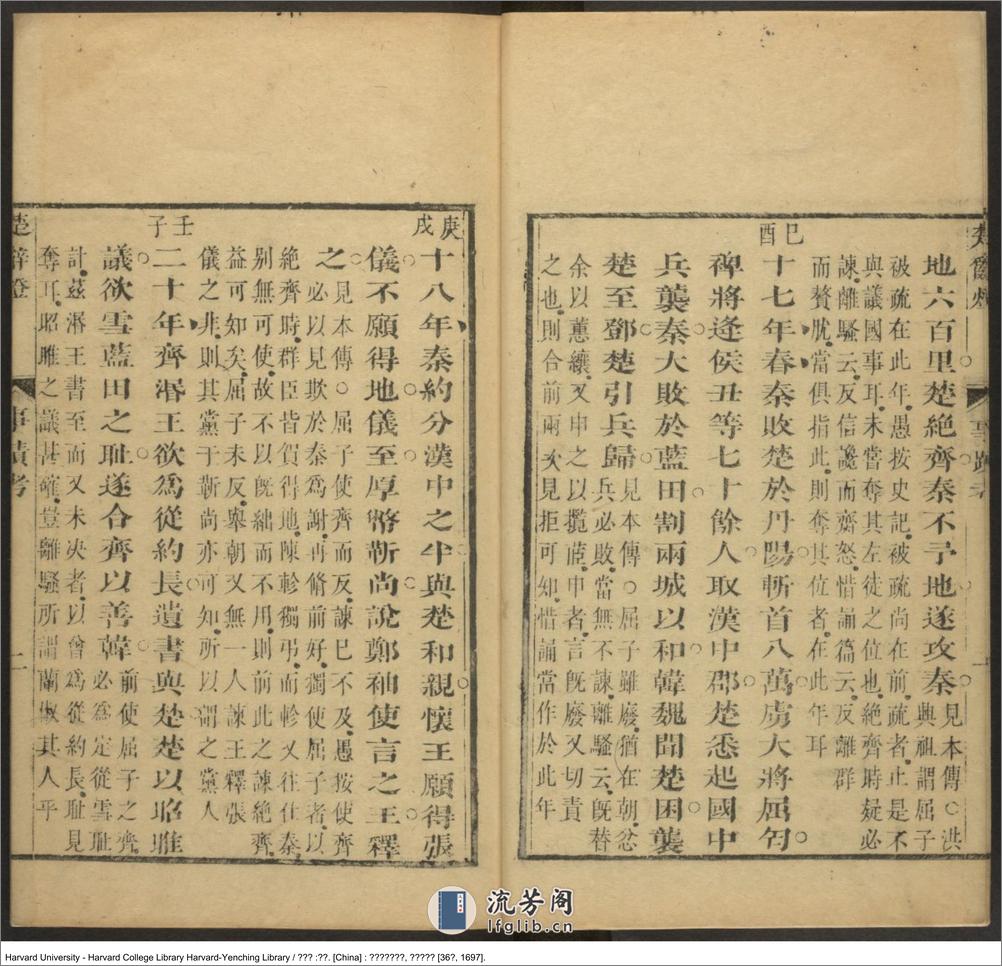 地六百里楚絶齊秦不予地遂攻秦
見本傳○洪
興祖謂屈子
被疏在此年愚按史記被疏尚在前疏者止是不
與議國事耳未嘗奪其左徒之位也絶齊時疑必
諫離騷云反信讒而齌怒惜誦篇云反離群
而贅肬當俱指此則奪其位者在此年耳
己酉
十七年春秦敗楚於丹陽斬首八萬虜大將屈匄
裨將逢侯丑等七十餘人取漢中郡楚悉起國中
兵襲秦大敗於藍田割兩城以和韓魏聞楚困襲
楚至鄧楚引兵歸
見本傳○屈子雖廢猶在朝忿
兵必敗當無不諫離騷云既替
余以蕙纕又申之以攬茝申者言既廢又切責
之也則合前兩次見拒可知惜誦當作於此年
庚戌
十八年秦約分漢中之半與楚和親懷王願得張
儀不願得地儀至厚幣靳尚說鄭袖使言之王釋
之
見本傳○屈子使齊而反諫已不及愚按使齊
之必以見欺於秦為謝再脩前好獨使屈子者以
絶齊時群臣皆賀得地陳軫獨弔而軫又往仕秦
别無可使故不以既絀而不用則前此之諫絶齊
益可知矣屈子未反舉朝又無一人諫王釋張
儀之非則其黨于靳尚亦可知所以謂之黨人
壬子
二十年齊湣王欲爲從約長遺書與楚楚以昭雎
議欲雪藍田之恥遂合齊以善韓
前使屈子之齊
必為定從雪恥
計茲湣王書至而又未決者以曾爲從約長恥見
奪耳昭雎之議甚確豈離騷所謂蘭椒其人乎
楚辭燈 事蹟考 二
流芳阁
lfglib.cn
Harvard University - Harvard College Library Harvard-Yenching Library / ??? :??. [China] : ???????, ????? [36?, 1697].